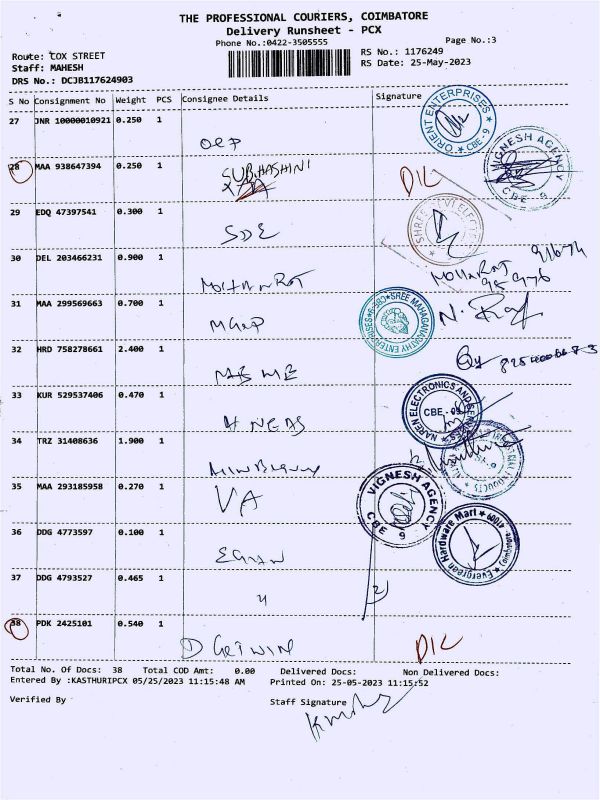 THE PROFESSIONAL COURIERS, COIMBATORE
Delivery Runsheet - PCX
Phone No.:0422-3505555
Page No.:3
Route: COX STREET
RS No.: 1176249
Staff: MAHESH
RS Date: 25-May-2023
DRS No.: DCJB117624903
S No Consignment No Weight PCS Consignee Details Signature
27 JNR 10000010921 0.250 1
ORIENT ENTERPRISES CBE - 9
28 MAA 938647394 0.250 1 SUBHASHINI DIL
VIGNESH AGENCY CBE - 9
29 EDQ 47397541 0.300 1 SDE
30 DEL 203466231 0.900 1
31 MAA 299569663 0.700 1
SREE MAHAGANAPATHY ENTERPRISES
N. Raj
32 HRD 758278661 2.400 1
33 KUR 529537406 0.470 1
NAREN ELECTRONICS AND SERVICES
34 TRZ 31408636 1.900 1
35 MAA 293185958 0.270 1 VA
VIGNESH AGENCY CBE 9
36 DDG 4773597 0.100 1
Evergreen Hardware Mart
37 DDG 4793527 0.465 1 "
38 PDK 2425101 0.540 1 DIL
Total No. Of Docs: 38 Total COD Amt: 0.00 Delivered Docs: Non Delivered Docs:
Entered By :KASTHURIPCX 05/25/2023 11:15:48 AM Printed On: 25-05-2023 11:15:52
Verified By Staff Signature